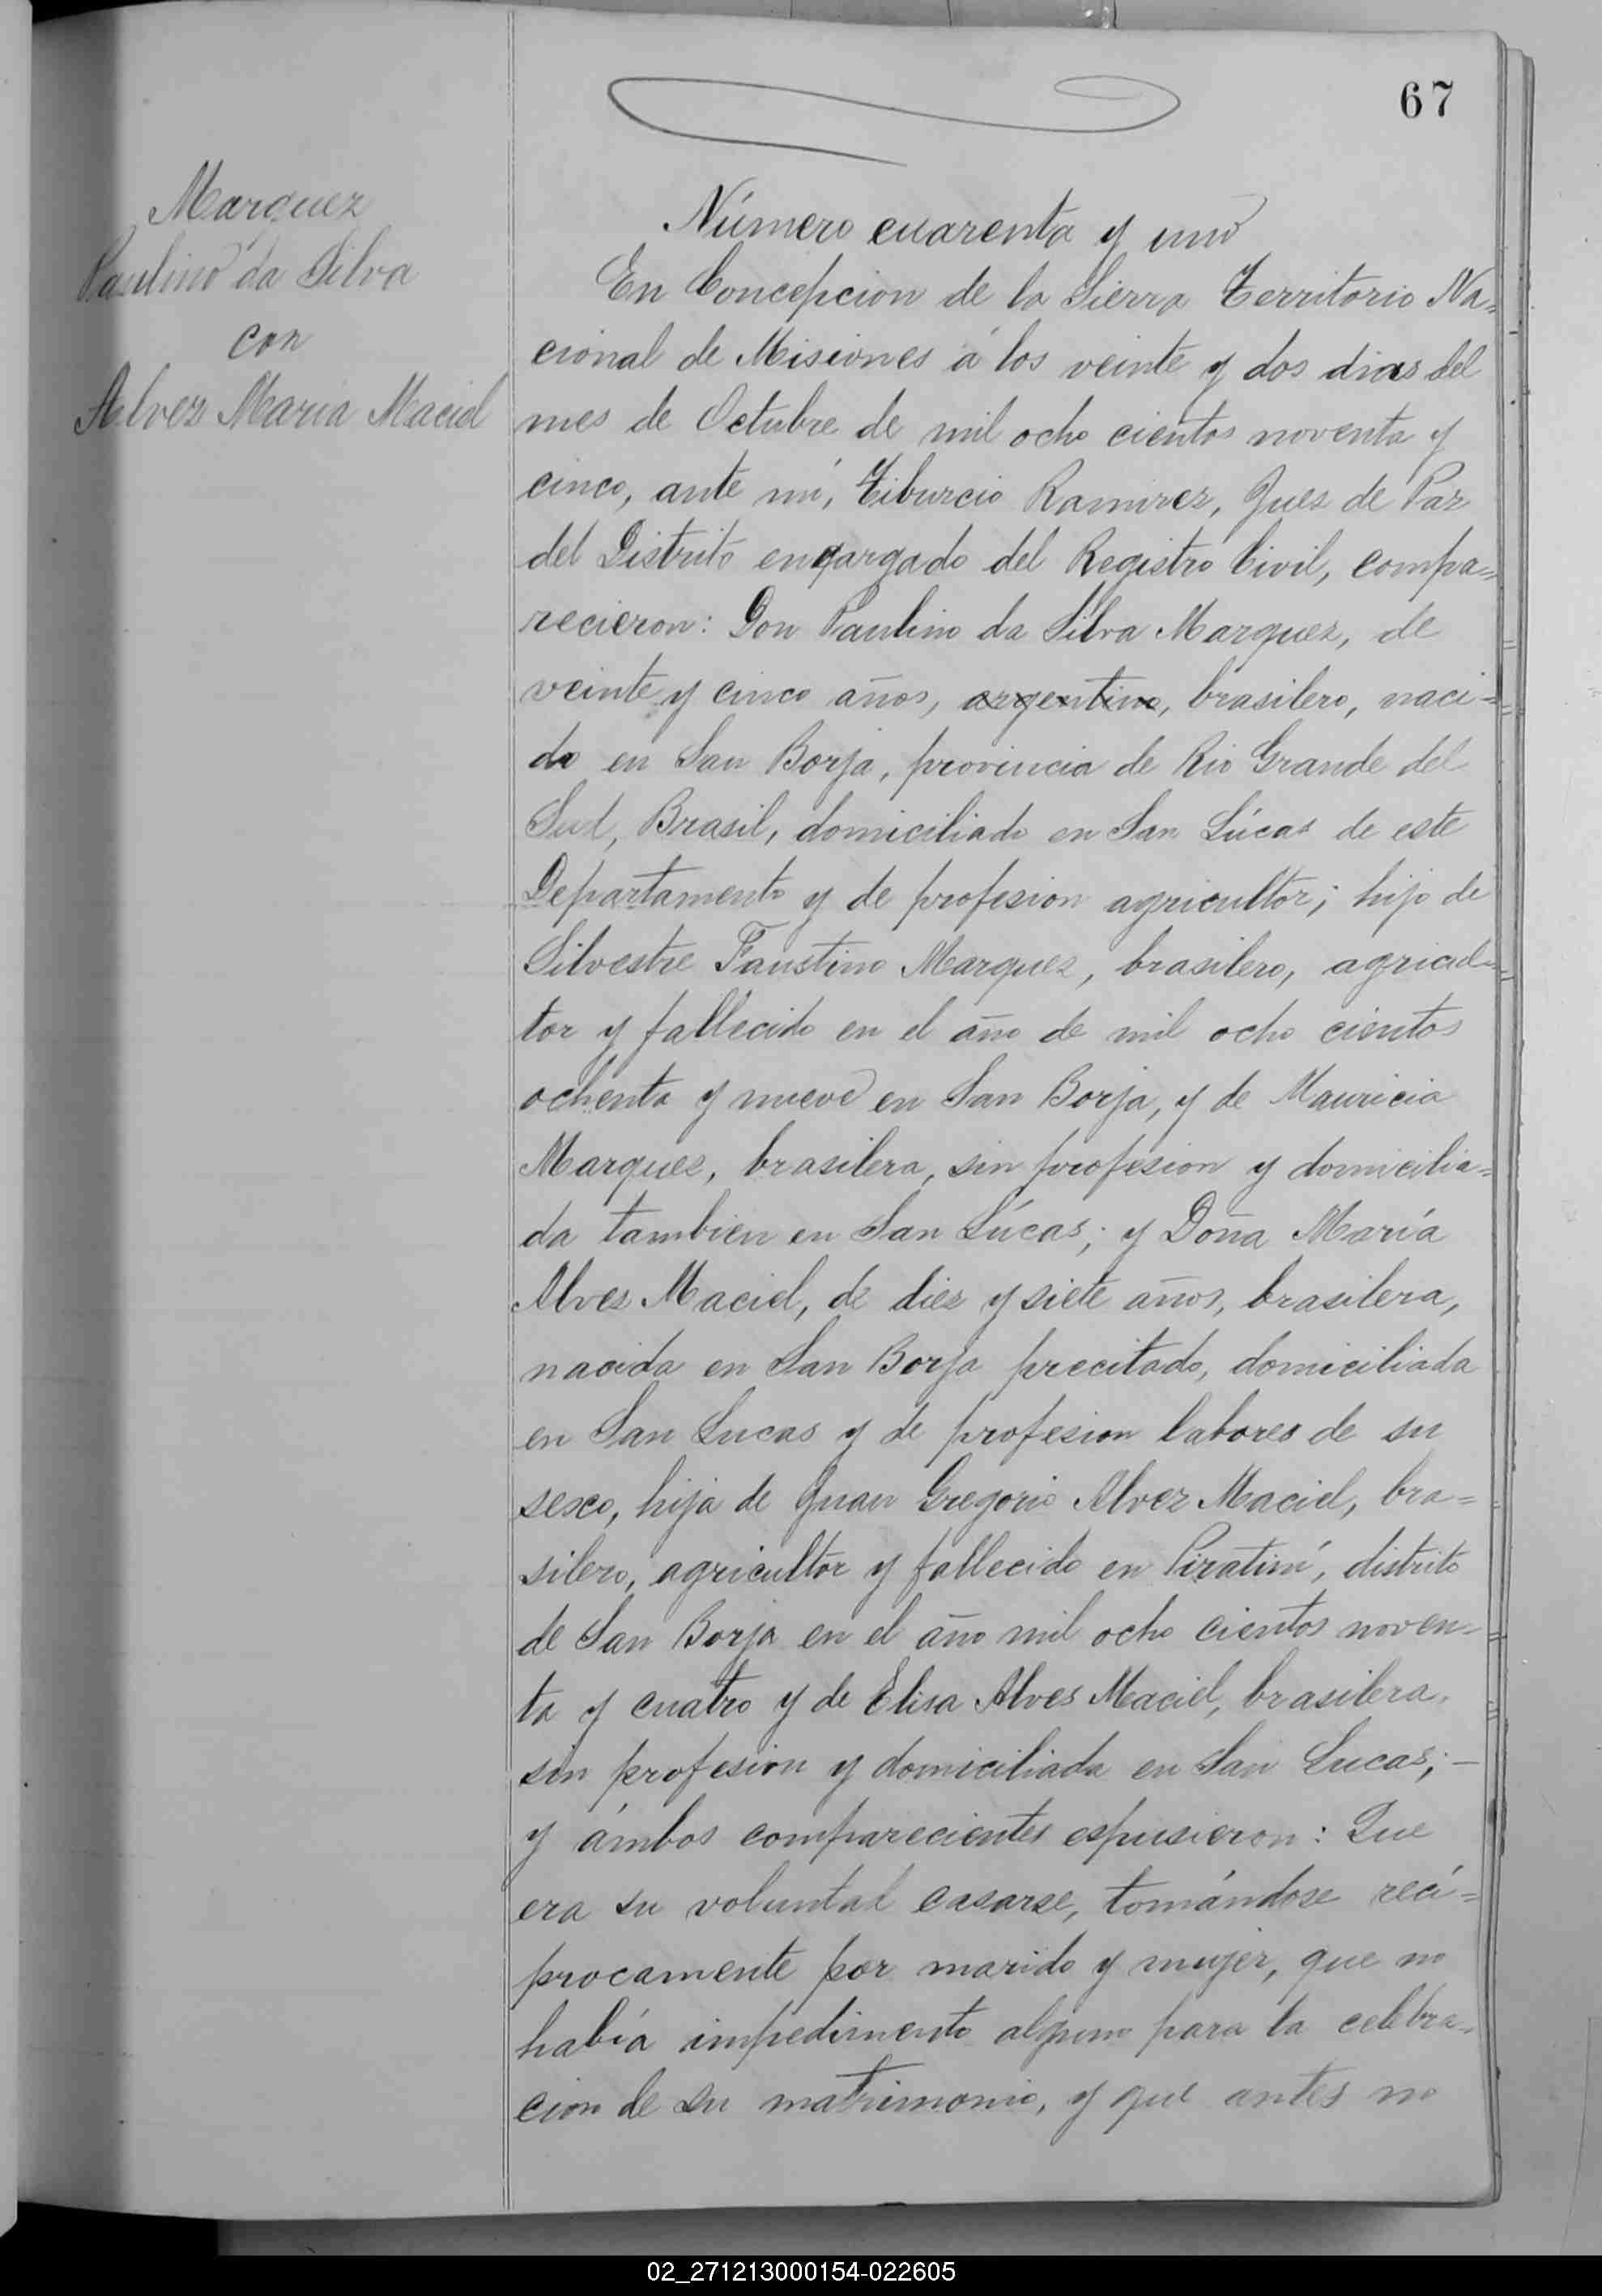 67
Marquez
Paulino da Silva
con
Alvez Maria Maciel
Número cuarenta y uno
En Concepcion de la Sierra Territorio Na=
cional de Misiones á los veinte y dos dias del
mes de Octubre de mil ocho cientos noventa y
cinco, ante mí, Tiburcio Ramirez, Juez de Paz
del Distrito encargado del Registro Civil, compa=
recieron: Don Paulino da Silva Marquez, de
veinte y cinco años, argentino, brasilero, naci=
do en San Borja, provincia de Rio Grande del
Sud, Brasil, domiciliado en San Lúcas de este
Departamento y de profesion agricultor; hijo de
Silvestre Faustino Marquez, brasilero, agricul=
tor y fallecido en el año de mil ocho cientos
ochenta y nueve en San Borja, y de Mauricia
Marquez, brasilera, sin profesion y domicilia=
da tambien en San Lúcas; y Doña María
Alvez Maciel, de diez y siete años, brasilera,
nacida en San Borja precitado, domiciliada
en San Lucas y de profesion labores de su
sexo, hija de Juan Gregorio Alvez Maciel, bra=
silero, agricultor y fallecido en Piratiní, distrito
de San Borja en el año mil ocho cientos noven=
ta y cuatro y de Elisa Alves Maciel, brasilera,
sin profesion y domiciliada en San Lucas; —
y ámbos comparecientes espusieron: Que
era su voluntad casarse, tomándose recí=
procamente por marido y mujer, que no
había impedimento alguno para la celebra=
cion de su matrimonio, y que antes no
02_271213000154-022605